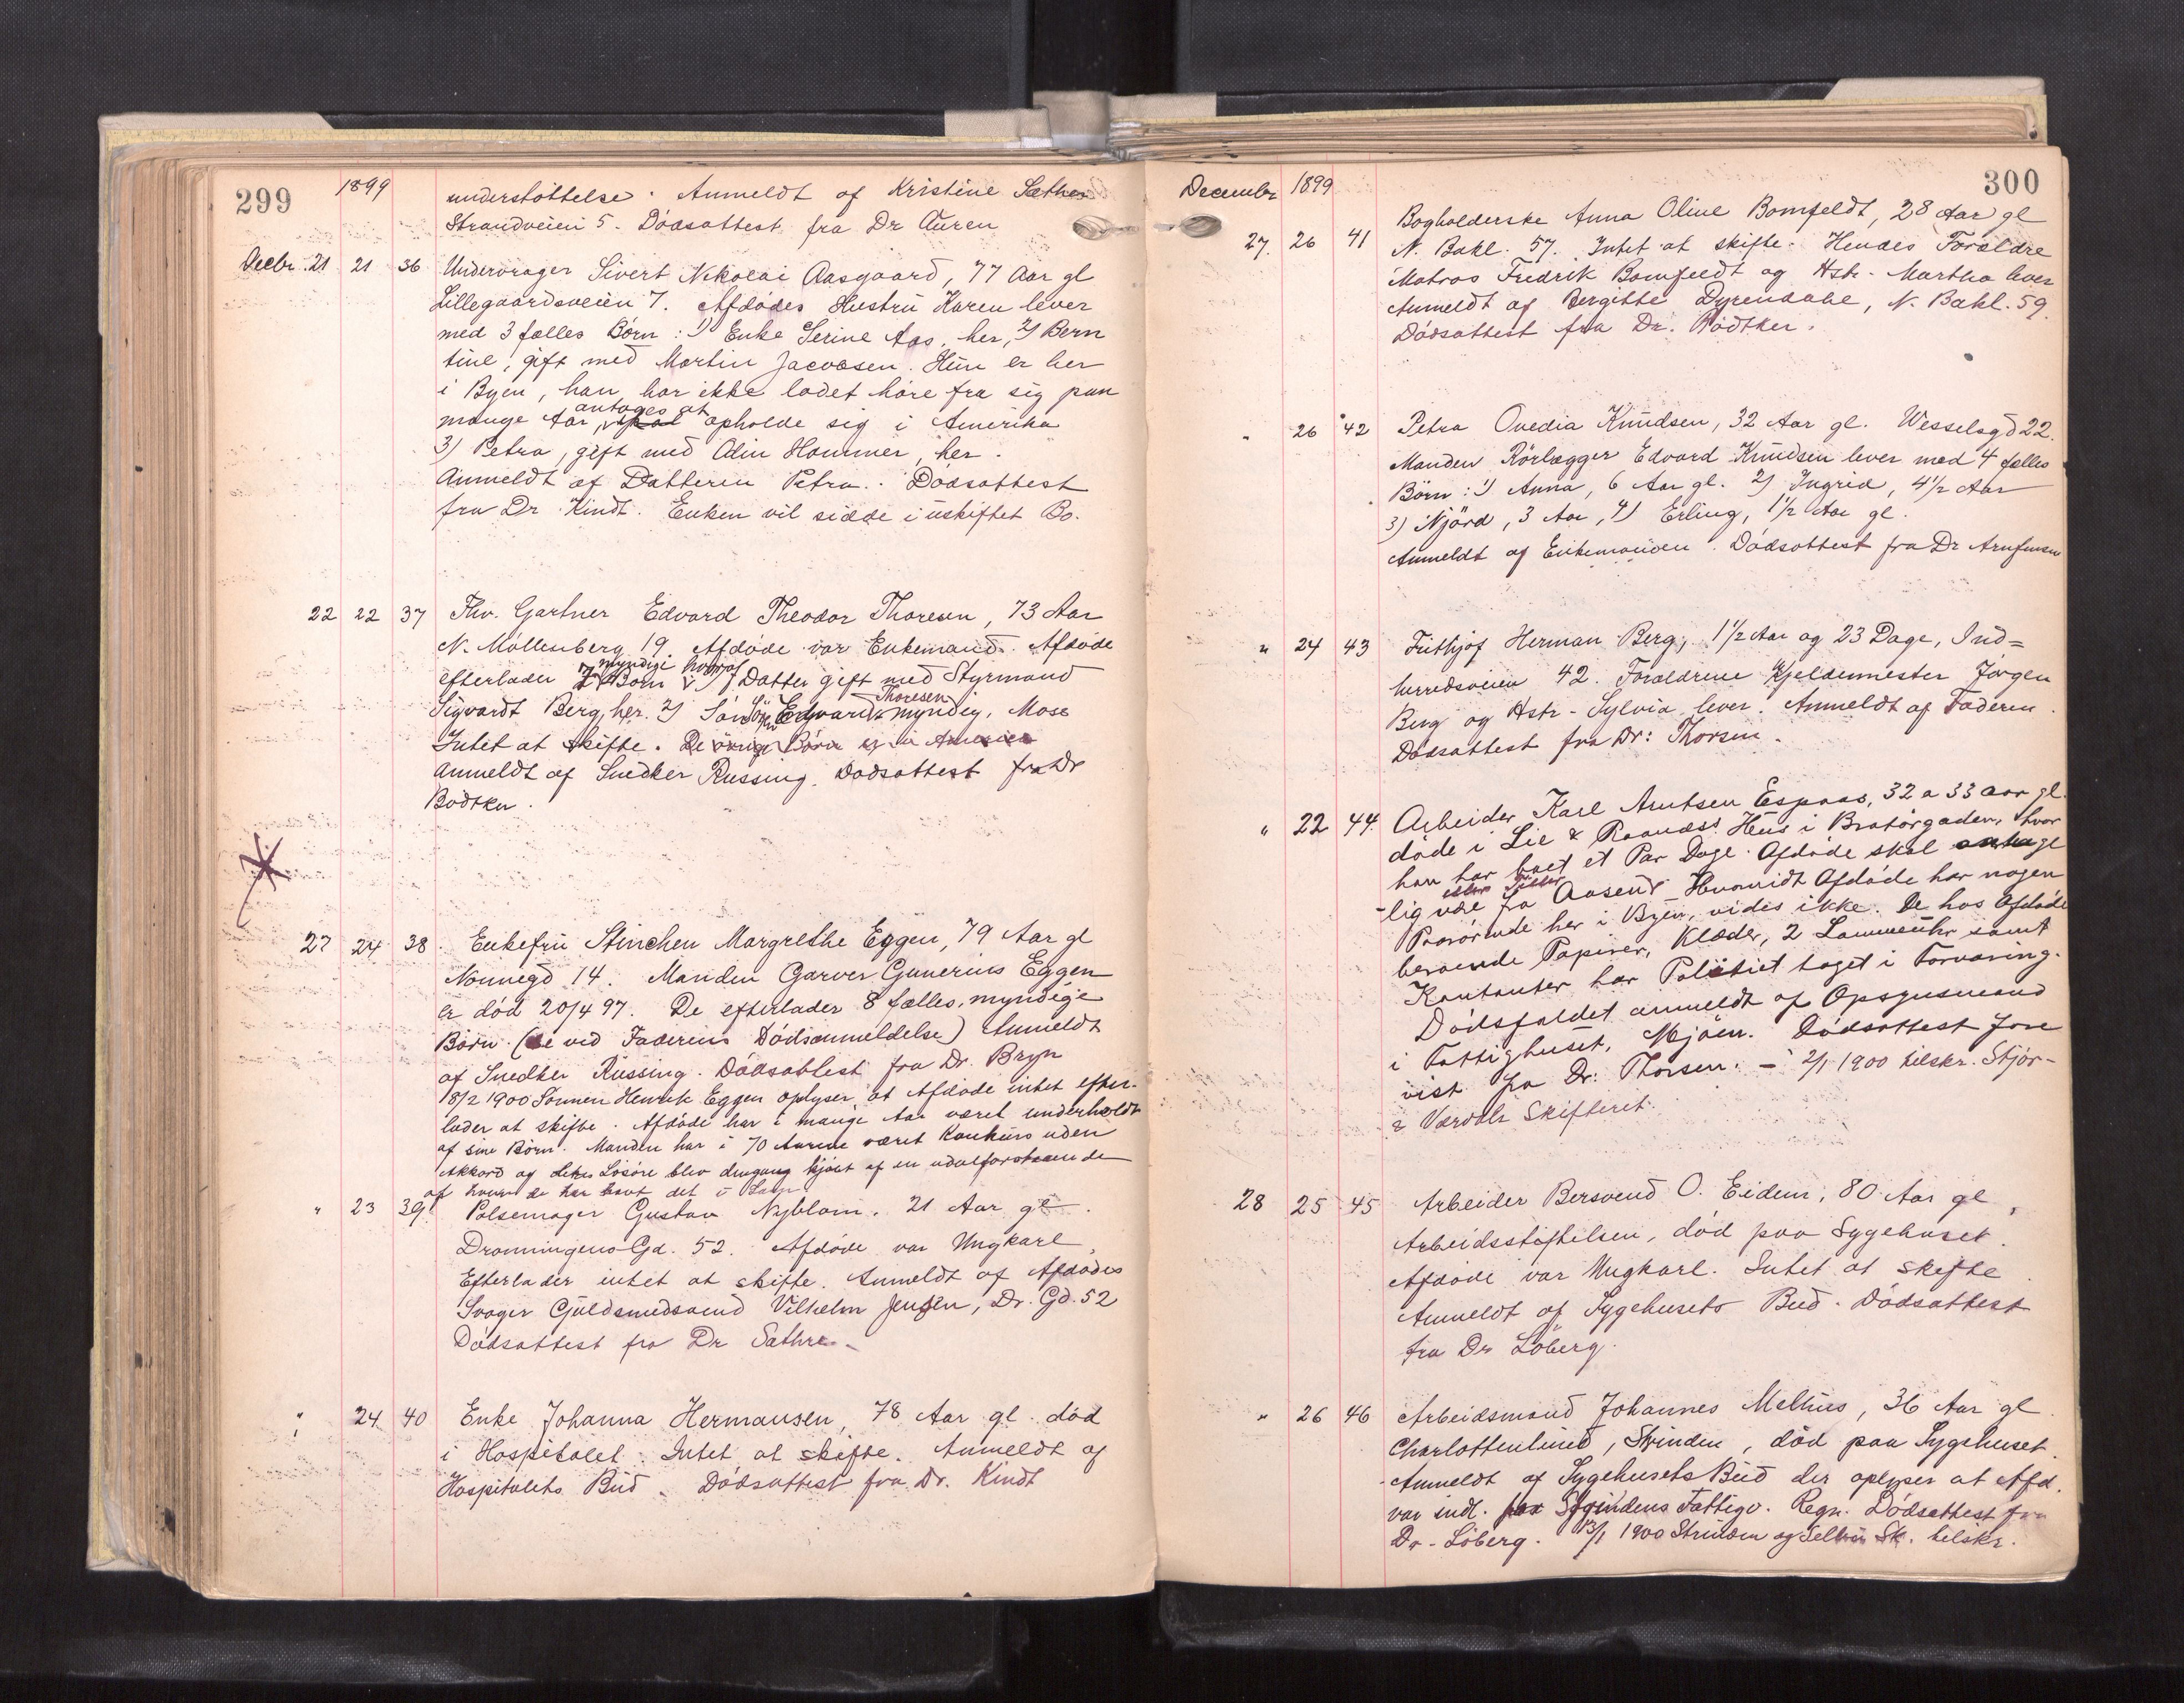 299 1899 understøttelse. Anmeldt af Kristine Sæther
Strandveien 5. Dödsattest fra Dr Auren
Decbr. 21 21 36 Undervrager Sivert Nikolai Aasgaard, 77 Aar gl
Lillegaardsveien 7. Afdödes Hustru Karen lever
med 3 fælles Börn: 1) Enke Serine Aas, her, 2) Bern
tine, gift med Martin Jacobsen. Hun er her
i Byen, han har ikke ladet höre fra sig paa
mange Aar, antages at opholde sig i Amerika
3) Petra, gift med Odin Hammer, her.
Anmeldt af Datteren Petra. Dödsattest
fra Dr Kindt. Enken vil sidde i uskiftet Bo.
22 22 37 Fhv. Gartner Edvard Theodor Thoresen, 73 Aar
N. Möllenberg 19. Afdöde var Enkemand. Afdöde
efterlader 7 myndige Börn hvoraf 1) Datter gift med Styrmand
Sigvardt Berg, her. 2) Sön Edvard Thoresen myndig, Moss
Intet at skifte. De övrige Börn er i Amerika
Anmeldt af Snedker Russing. Dödsattest fra Dr
Bödtker.
27 24 38. Enkefru Stinchen Margrethe Eggen, 79 Aar gl
Nonnegd 14. Manden Garver Gunerius Eggen
er död 20/4 97. De efterlader 8 fælles, myndige
Börn. (se ved Faderens Dödsanmeldelse) Anmeldt
af Snedker Russing. Dödsattest fra Dr. Bryn
18/2 1900 Sönnen Henrik Eggen oplyser, at Afdöde intet efter-
lader at skifte. Afdöde har i mange Aar været underholdt
af sine Börn. Manden har i 70 Aarene været Konkurs uden
Akkord og deres Lösöre blev dengang kjöbt af en udenforstaaende
af hvem de har havt det i Laan
" 23 39. Pølsemager Gustav Nyblom. 21 Aar gl.
Dronningens Gd. 52. Afdöde var Ungkarl
Efterlader intet at skifte. Anmeldt af Afdödes
Svoger Guldsmedsvend Vilhelm Jensen, Dr. Gd. 52
Dödsattest fra Dr Sæthre
" 24 40 Enke Johanna Hermansen, 78 Aar gl. död
i Hospitalet. Intet at skifte. Anmeldt af
Hospitalets Bud. Dödsattest fra Dr. Kindt
December 1899 300
Bogholderske Anna Oline Bomfeldt, 28 Aar gl
27. 26 41 N. Bakl. 57. Intet at skifte. Hendes Forældre
Matros Fredrik Bomfeldt og Hstr. Martha lever
Anmeldt af Bergitte Dyrendahl, N. Bakl. 59.
Dödsattest fra Dr. Bödtker.
" 26 42 Petra Ovedia Knudsen, 32 Aar gl. Wesselsgd 22.
Manden Rörlægger Edvard Knudsen lever med 4 fælles
Börn: 1) Anna, 6 Aar gl. 2) Ingrid, 4 1/2 Aar
3) Njörd, 3 Aar, 4) Erling, 1 1/2 Aar gl.
Anmeldt af Enkemanden. Dödsattest fra Dr Arnfinsen
" 24 43 Frithjof Herman Berg, 1 1/2 Aar og 23 Dage, Ind=
herredsveien 42. Forældrene Kjeldermester Jörgen
Berg og Hstr. Sylvia lever. Anmeldt af Faderen.
Dödsattest fra Dr: Thorsen.
" 22 44. Arbeider Karl Arntsen Espaas, 32 a 33 aar gl.
döde i Lie & Raanæss Hus i Bratörgaden, hvor
han har boet et Par Dage. Afdöde skal antage
-lig være fra Aasen eller Hvorvidt Afdöde har nogen
Paarörende her i Byen, vides ikke. De hos Afdöde
beroende Papirer, Klæder, 2 Lommeuhr samt
Kontanter har Politiet taget i Forvaring.
Dödsfaldet anmeldt af Opsynsmand
i Fattighuset, Mjöen. Dödsattest fore
vist fra Dr: Thorsen. – 2/1 1900 tilskr. Stjör-
& Værdals Skifteret
28 25 45 Arbeider Bersvend O. Eidem, 80 Aar gl,
Arbeidsstiftelsen, död paa Sygehuset.
Afdöde var Ungkarl. Intet at skifte.
Anmeldt af Sygehusets Bud. Dödsattest
fra Dr Löberg.
" 26 46 Arbeidsmand Johannes Melhus, 36 Aar gl
Charlottenlund, Strinden, död paa Sygehuset.
Anmeldt af Sygehusets Bud der oplyser at Afd.
var indl. paa Strindens Fattigv. Regn. Dödsattest fra
Dr. Löberg. 13/1 1900 Strinden og Selbu Sk. tilskr.